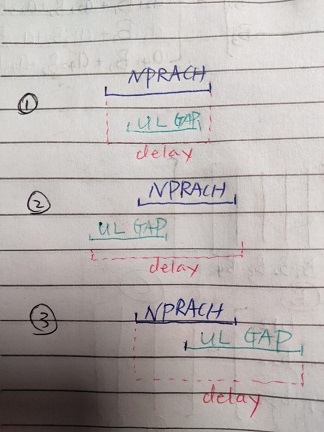 NPRACH
①
UL GAP
delay
②
NPRACH
UL GAP
delay
③
NPRACH
UL GAP
delay